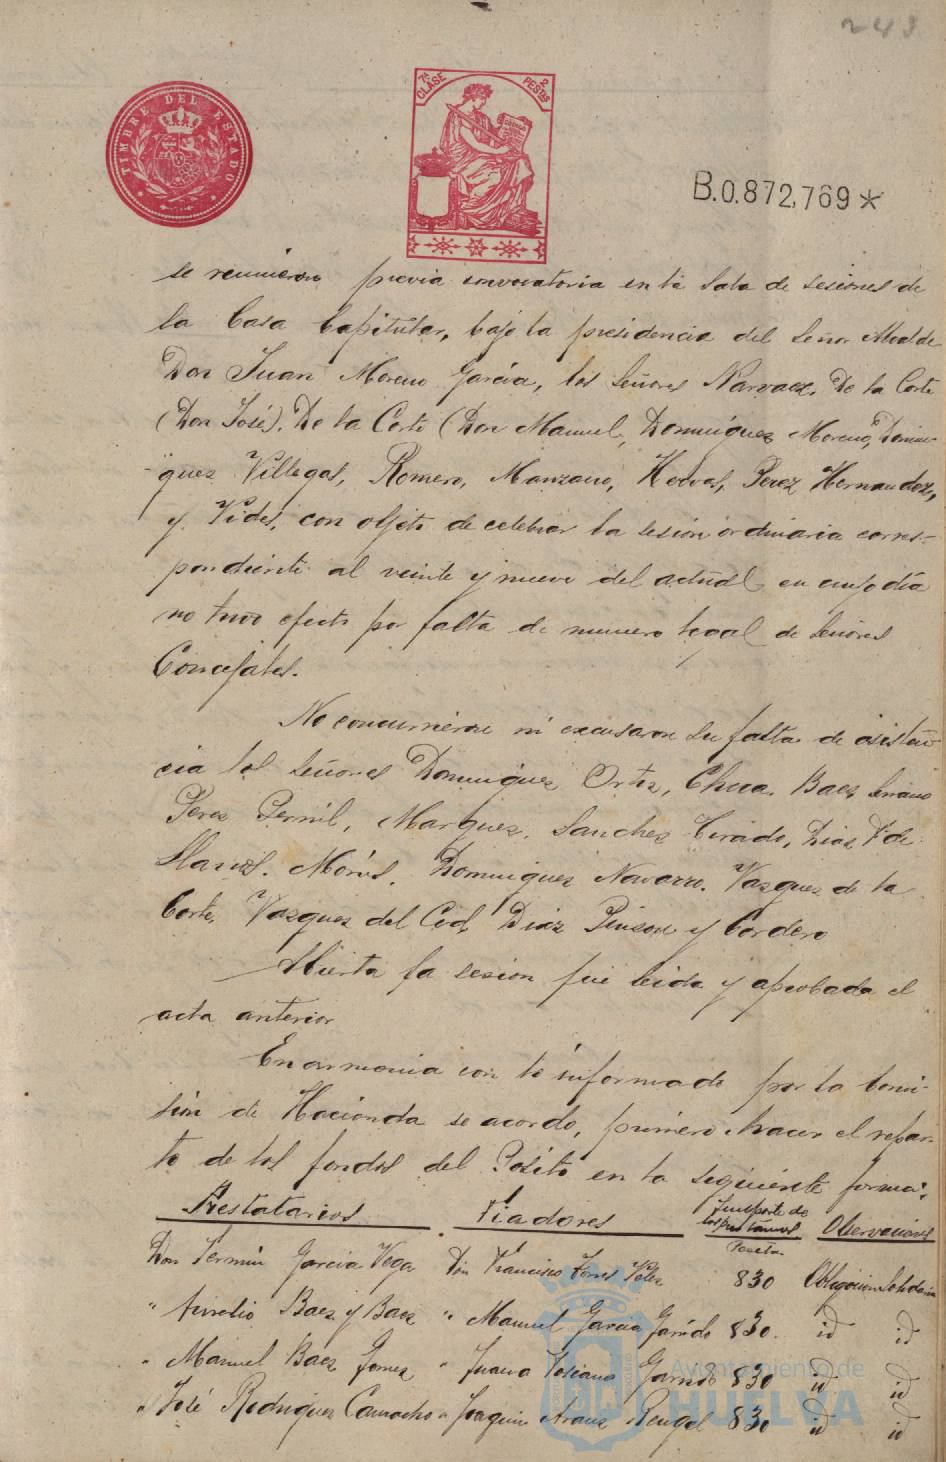 243
TIMBRE DEL ESTADO
7ª CLASE 2 PESTAS
B.0.872,769*
se reunieron previa convocatoria en la Sala de Sesiones de
la Casa Capitular, bajo la presidencia del Señor Alcalde
Don Juan Moreno Garcia, los Señores Narvaez, De la Corte
(Don José), De la Corte (Don Manuel, Dominguez Moreno, Domin-
guez Villegas, Romero, Manzano, Hervas, Perez Hernandez,
y Vides, con objeto de celebrar la sesion ordinaria corres-
pondiente al veinte y nueve del actual en cuyo dia
no tuvo efecto por falta de numero legal de Señores
Concejales.
No concurrieron ni excusaron su falta de asisten-
cia los Señores Dominguez Ortiz, Checa, Baez Serrano
Perez Pernil, Marquez, Sanchez Tirado, Diaz F. de
Llanos, Morás, Dominguez Navarro, Vazquez de la
Corte, Vazquez del Cid, Diaz Pinzon y Cordero
Abierta la sesion fue leida y aprobada el
acta anterior
En armonia con lo informado por la Comi-
sion de Hacienda se acordo, primero hacer el repar-
to de los fondos del Pósito en la siguiente forma:
Prestatarios Fiadores Importe de los préstamos Observaciones
Pesetas
Don Fermin Garcia Vega Don Francisco Torres Perez 830 Obligacion Solidaria
" Aurelio Baez y Baez " Manuel Garcia Garrido 830. id id
" Manuel Baez Gomez " Juana Toscano Garrido 830 id id
" José Rodriguez Camacho " Joaquin Arauz Rengel 830 id id
Ayuntamiento de
HUELVA